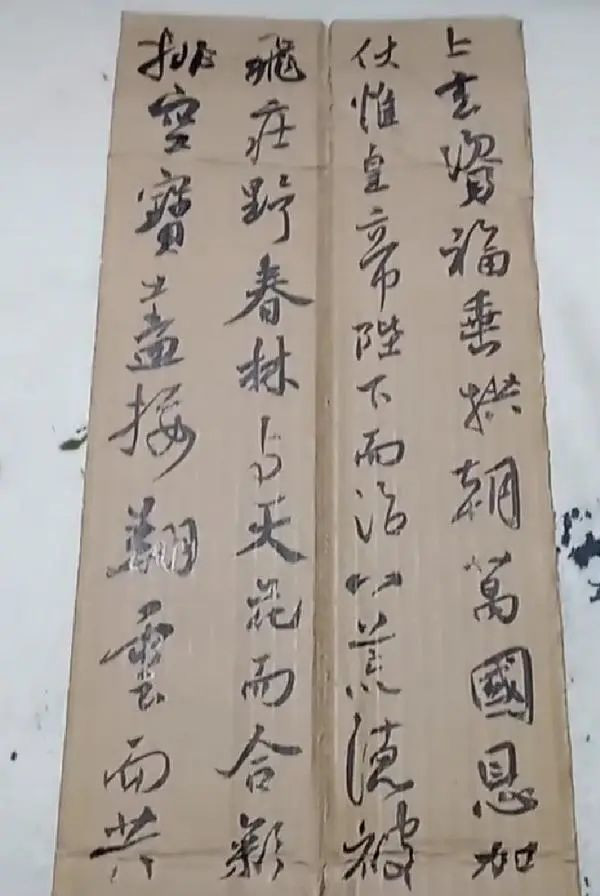 排空寶蓋接翔雲而共
飛庄野春林与天花而合彩
伏惟皇帝陛下而治八荒德被
上玄資福垂拱朝萬國恩加